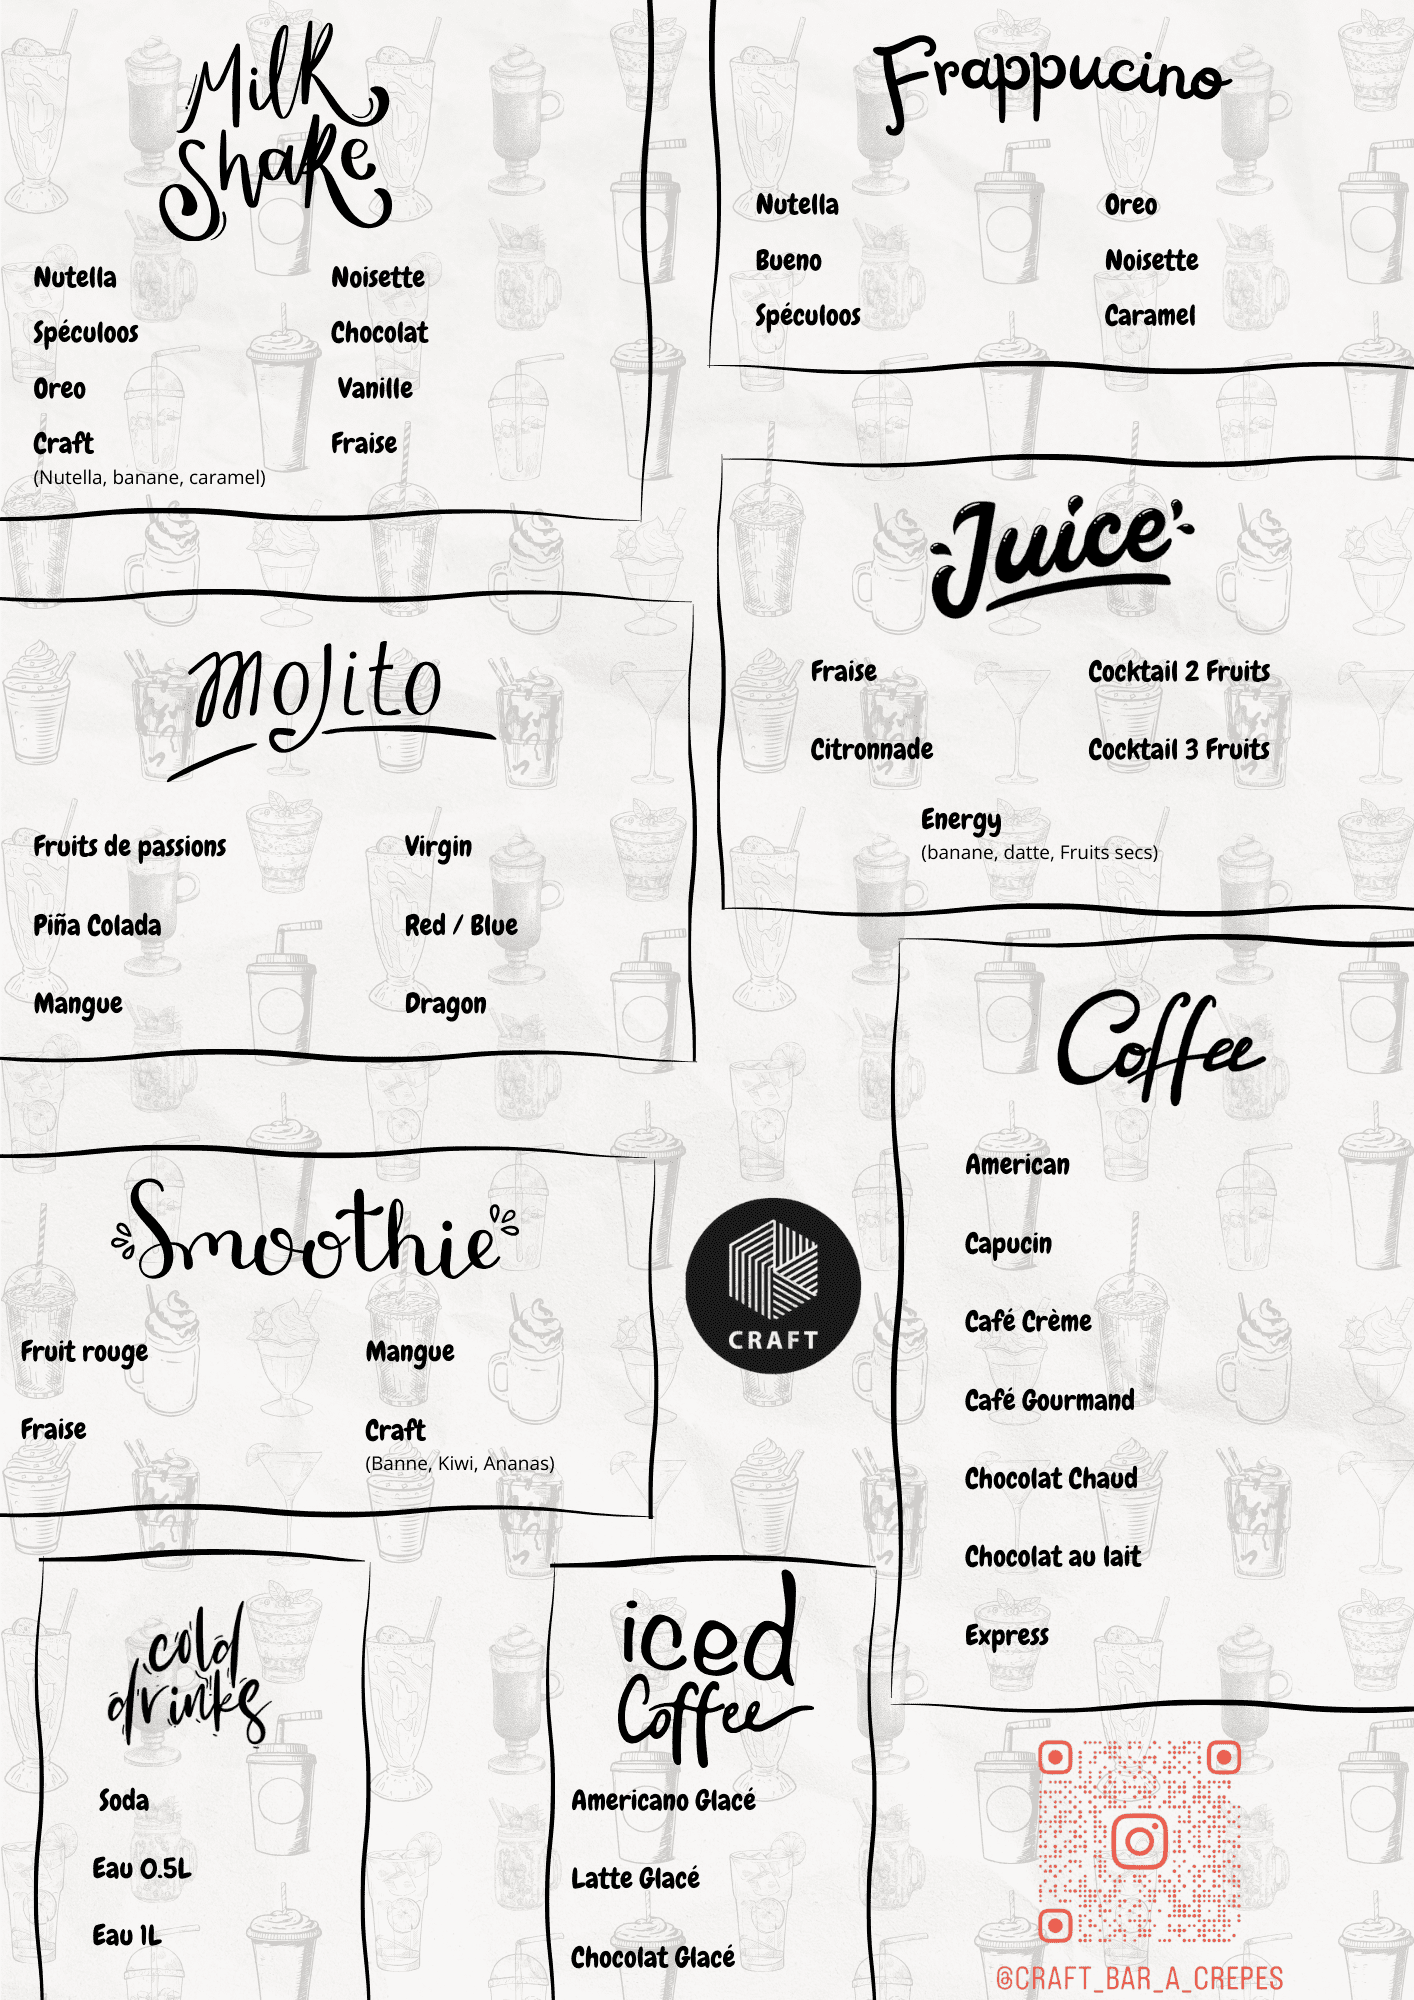 Milk
Shake
Nutella
Noisette
Spéculoos
Chocolat
Oreo
Vanille
Craft
Fraise
(Nutella, banane, caramel)
Frappucino
Nutella
Oreo
Bueno
Noisette
Spéculoos
Caramel
Juice
Fraise
Cocktail 2 Fruits
Citronnade
Cocktail 3 Fruits
Energy
(banane, datte, Fruits secs)
Mojito
Fruits de passions
Virgin
Piña Colada
Red / Blue
Mangue
Dragon
Coffee
American
Capucin
Café Crème
Café Gourmand
Chocolat Chaud
Chocolat au lait
Express
Smoothie
Fruit rouge
Mangue
Fraise
Craft
(Banne, Kiwi, Ananas)
CRAFT
cold
drinks
Soda
Eau 0.5L
Eau 1L
iced
Coffee
Americano Glacé
Latte Glacé
Chocolat Glacé
@CRAFT_BAR_A_CREPES